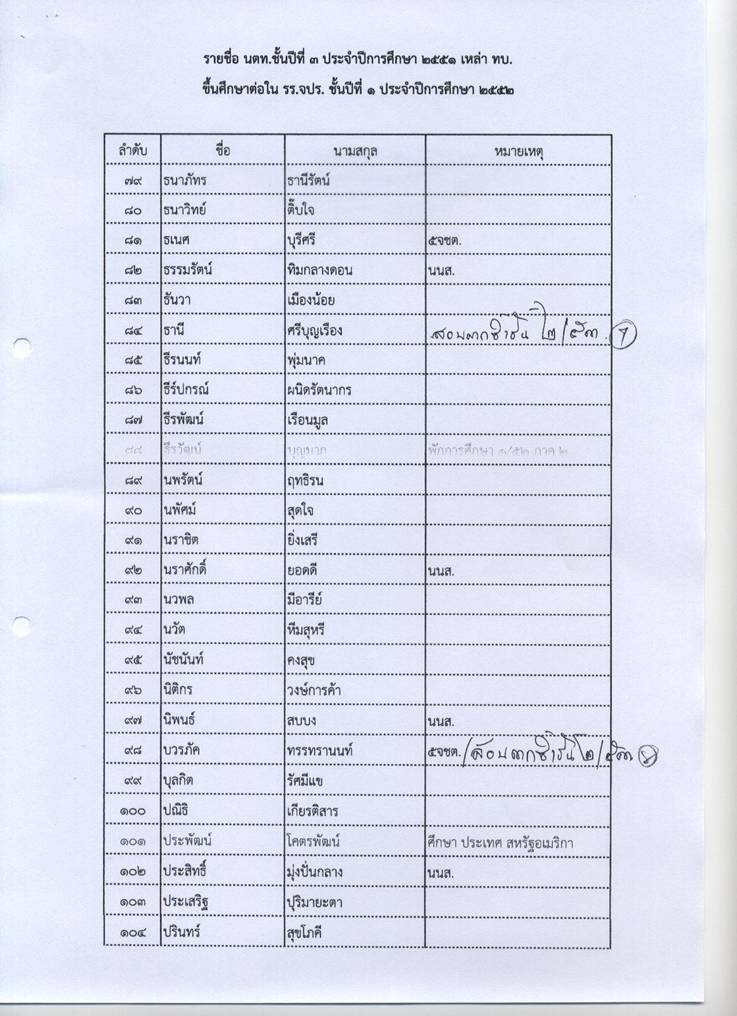 รายชื่อ นตท.ชั้นปีที่ ๓ ประจำปีการศึกษา ๒๕๕๑ เหล่า ทบ.
ขึ้นศึกษาต่อใน รร.จปร. ชั้นปีที่ ๑ ประจำปีการศึกษา ๒๕๕๒
ลำดับ ชื่อ นามสกุล หมายเหตุ
๗๙ ธนาภัทร ธานีรัตน์
๘๐ ธนาวิทย์ ติ๊บใจ
๘๑ ธเนศ บุรีศรี ๕จชต.
๘๒ ธรรมรัตน์ ทิมกลางดอน นนส.
๘๓ ธันวา เมืองน้อย
๘๔ ธานี ศรีบุญเรือง สอบตกซ้ำชั้น ๒/๕๓
๘๕ ธีรนนท์ พุ่มนาค
๘๖ ธีร์ปกรณ์ ผนิดรัตนากร
๘๗ ธีรพัฒน์ เรือนมูล
๘๘ ธีรวัฒน์ บุญมาก พักการศึกษา ๑/๕๒ ภาค ๒
๘๙ นพรัตน์ ฤทธิรน
๙๐ นพัศม์ สุดใจ
๙๑ นราชิต ยิ่งเสรี
๙๒ นราศักดิ์ ยอดดี นนส.
๙๓ นวพล มีอารีย์
๙๔ นวัต หีมสุหรี
๙๕ นัชนันท์ คงสุข
๙๖ นิติกร วงษ์การค้า
๙๗ นิพนธ์ สบบง นนส.
๙๘ บวรภัค ทรรทรานนท์ ๕จชต./สอบตกซ้ำชั้น ๒/๕๓
๙๙ บุลกิต รัศมีแข
๑๐๐ ปณิธิ เกียรติสาร
๑๐๑ ประพัฒน์ โคตรพัฒน์ ศึกษา ประเทศ สหรัฐอเมริกา
๑๐๒ ประสิทธิ์ มุ่งปั่นกลาง นนส.
๑๐๓ ประเสริฐ ปุริมายะตา
๑๐๔ ปรินทร์ สุขโภคี